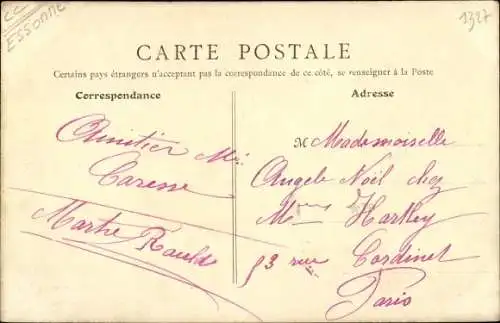 CC
ESSONNE
1327
CARTE POSTALE
Certains pays étrangers n'acceptant pas la correspondance de ce côté, se renseigner à la Poste
Correspondance
Adresse
Amitier
Caresse
Marthe
M Mademoiselle
Angele Noël chez
Harkey
83 rue Cardinet
Paris